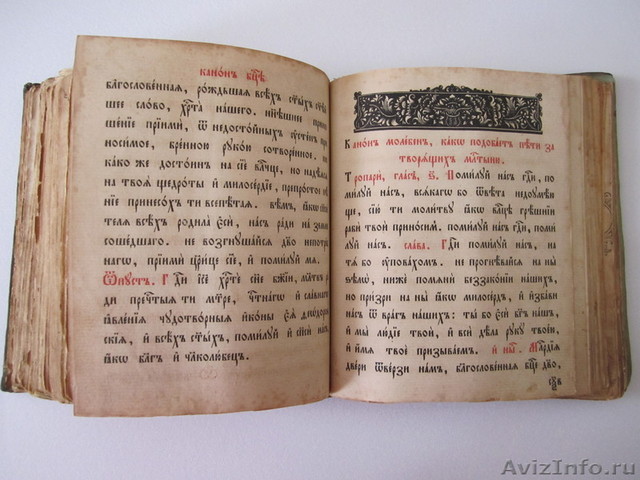 канѡ́нъ бцⷣѣ
благословенная, рождьшая всѣхъ ст҃ыхъ ст҃ѣ
шее слово, хрⷭ҇та нашего. нн҃ѣшнее
шенїе прїими, ѿ недостойныхъ ꙋстенъ при
носимое, бренною рꙋкою сотворенное.
коже достоин на сїе
на твоѧ щедроты и милосердїе, препростое
нїе принесохъ ти всепѣтая. вѣмъ, ꙗкѡ
телѧ всѣхъ родила еси, насъ ради на зем
сошедшаго. не возгнꙋшайсѧ дв҃о
нагѡ, прїими цр҃ице сїе, и помилꙋй мѧ.
Ѿпꙋстъ. Гдⷭ҇и ї҃се хрⷭ҇те сн҃е бж҃їи, мл҃твъ ра
ди пречⷭ҇тыѧ ти мт҃ре, чтⷭ҇нагѡ и славнагѡ
ꙗвленїѧ чꙋдотворныѧ иконы еѧ
скїѧ, и всѣхъ ст҃ыхъ, помилꙋй и сп҃си насъ,
ꙗкѡ бл҃гъ и чл҃колюбецъ.
Канѡнъ молебенъ, какѡ подобаетъ пѣти за
творѧщихъ млⷭ҇тыню.
Тропари, гласъ, ѕ҃. Помилꙋй насъ гдⷭ҇и, по
милꙋй насъ, всѧкагѡ бо ѿвѣта недоꙋмѣю
ще, сїю ти молитвꙋ ꙗкѡ вл҃цѣ грѣшнїи
раби твои приносим. помилꙋй насъ гдⷭ҇и, поми
лꙋй насъ. слава. Гдⷭ҇и помилꙋй насъ, на
тѧ бо ꙋповахом. не прогнѣвайсѧ на ны
ѕѣлѡ, нижѐ помѧни беззаконїи нашихъ,
но призри на ны ꙗкѡ милосердъ, и избави
насъ ѿ врагъ нашихъ: ты бо еси бг҃ъ нашъ,
и мы людїе твои, и вси дѣла рꙋкꙋ твоею,
и имѧ твое призываемъ. и нн҃ѣ. Млⷭ҇рдїѧ
двери ѿверзи намъ, благословеннаѧ бцⷣе дв҃о,
AvizInfo.ru